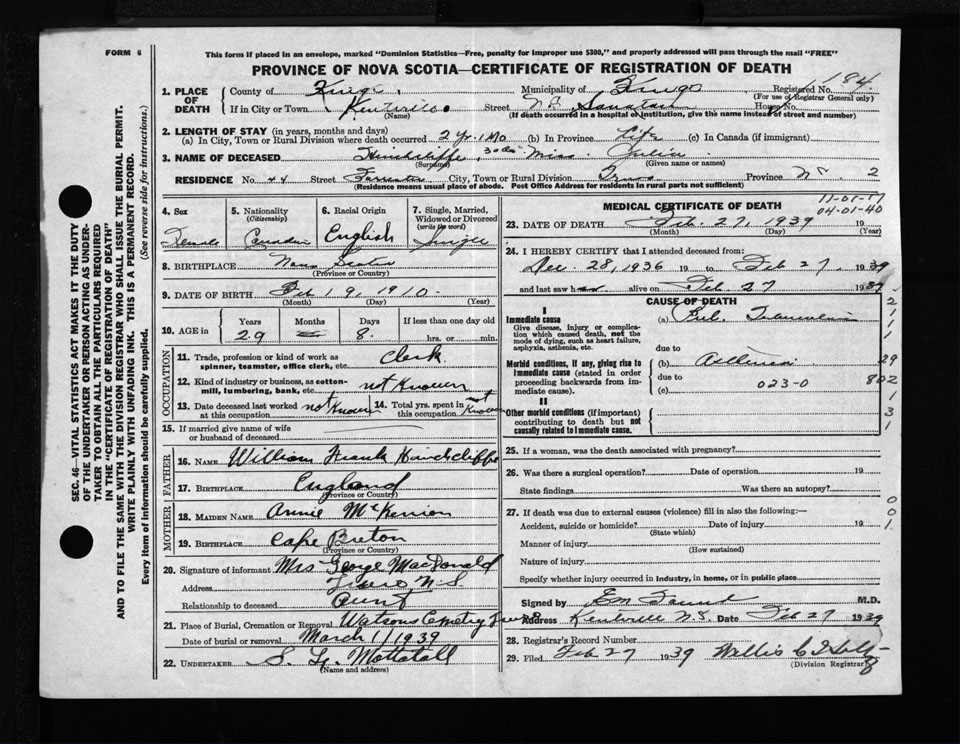 FORM 6
This form if placed in an envelope, marked "Dominion Statistics—Free, penalty for improper use $300," and properly addressed will pass through the mail "FREE"
PROVINCE OF NOVA SCOTIA—CERTIFICATE OF REGISTRATION OF DEATH
184
1. PLACE OF DEATH
County of Kings Municipality of Kings Registered No.
(For use of Registrar General only)
If in City or Town Kentville Street N.S. Sanatorium House No.
(Name) (If death occurred in a hospital or institution, give the name instead of street and number)
2. LENGTH OF STAY (in years, months and days)
(a) In City, Town or Rural Division where death occurred 2 Yr. 1 Mo 30 ds (b) In Province Life (c) In Canada (if immigrant)
3. NAME OF DECEASED Hinchcliffe, Miss. Julia
(Surname) (Given name or names)
RESIDENCE No. 44 Street Forrester City, Town or Rural Division Truro Province N.S. 2
(Residence means usual place of abode. Post Office Address for residents in rural parts not sufficient)
4. Sex
Female
5. Nationality
(Citizenship)
Canadian
6. Racial Origin
English
7. Single, Married, Widowed or Divorced
(write the word)
Single
8. BIRTHPLACE Nova Scotia
(Province or Country)
9. DATE OF BIRTH Feb 19, 1910
(Month) (Day) (Year)
10. AGE in
Years Months Days If less than one day old
29 8. hrs. or min.
OCCUPATION
11. Trade, profession or kind of work as spinner, teamster, office clerk, etc. Clerk
12. Kind of industry or business, as cotton-mill, lumbering, bank, etc. not Known
13. Date deceased last worked at this occupation not Known
14. Total yrs. spent in this occupation not Known
15. If married give name of wife or husband of deceased
FATHER
16. NAME William Frank Hinchcliffe
17. BIRTHPLACE England
(Province or Country)
MOTHER
18. MAIDEN NAME Annie McKinnon
19. BIRTHPLACE Cape Breton
(Province or Country)
20. Signature of informant Mrs George MacDonald
Address Truro N.S.
Relationship to deceased Aunt
21. Place of Burial, Cremation or Removal Watsons Cemetry Truro
Date of burial or removal March 1/1939
22. UNDERTAKER Mattatall
(Name and address)
MEDICAL CERTIFICATE OF DEATH
04-01-40
23. DATE OF DEATH Feb. 27, 1939
(Month) (Day) (Year)
24. I HEREBY CERTIFY that I attended deceased from:
Dec. 28, 1936 19 to Feb 27, 1939
and last saw her alive on Feb. 27 1939
CAUSE OF DEATH
I
Immediate cause
Give disease, injury or complication which caused death, not the mode of dying, such as heart failure, asphyxia, asthenia, etc.
(a) Pul. Tuberculosis
due to
Morbid conditions, if any, giving rise to immediate cause (stated in order proceeding backwards from immediate cause).
(b)
due to
(c) 023-0
29
802
II
Other morbid conditions (if important) contributing to death but not causally related to immediate cause.
25. If a woman, was the death associated with pregnancy?
26. Was there a surgical operation? Date of operation 19
State findings Was there an autopsy?
27. If death was due to external causes (violence) fill in also the following:—
Accident, suicide or homicide? Date of injury 19
(State which)
Manner of injury
(How sustained)
Nature of injury
Specify whether injury occurred in industry, in home, or in public place
Signed by M.D.
Address Kentville N.S. Date Feb 27 1939
28. Registrar's Record Number
29. Filed Feb 27 1939 Willis C
(Division Registrar)
SEC. 46—VITAL STATISTICS ACT MAKES IT THE DUTY
OF THE UNDERTAKER OR PERSON ACTING AS UNDERTAKER TO OBTAIN ALL THE PARTICULARS REQUIRED
IN THE "CERTIFICATE OF REGISTRATION OF DEATH"
AND TO FILE THE SAME WITH THE DIVISION REGISTRAR WHO SHALL ISSUE THE BURIAL PERMIT.
WRITE PLAINLY WITH UNFADING INK. THIS IS A PERMANENT RECORD.
Every item of Information should be carefully supplied. (See reverse side for instructions.)